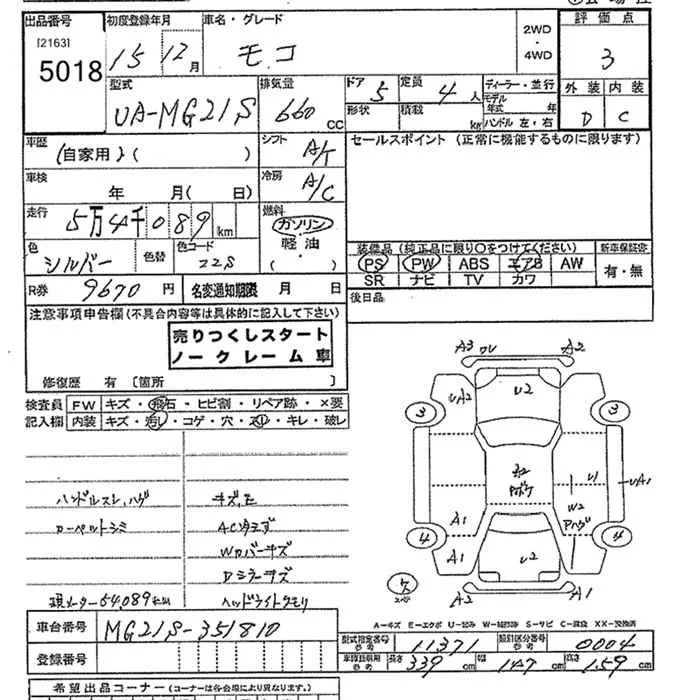 出品番号 初度登録年月 車名・グレード 評価点
[2163]
5018 15 12月 モコ 2WD・4WD 3
型式 排気量 ドア 5 定員 4人 ディーラー・並行 外装 内装
UA-MG21S 660 CC 形状 積載 kg モデル年式 年 ハンドル 左・右 D C
車歴 (自家用)( ) シフト A/T セールスポイント (正常に機能するものに限ります)
車検 年 月( 日) 冷房 A/C
走行 5万4千089km 燃料 ガソリン・軽油・( )
色 シルバー 色替 色コード Z2S 装備品 (純正品に限り○をつけてください) 新車保証書
PS PW ABS エアB AW 有・無
SR ナビ TV カワ
R券 9670円 名変通知期限 月 日 後日品
注意事項申告欄(不具合内容等は具体的に記入して下さい)
売りつくしスタート
ノークレーム車
修復歴 有 [箇所 ]
検査員 FW キズ・飛石・ヒビ割・リペア跡・×要
記入欄 内装 キズ・汚レ・コゲ・穴・スレ・キレ・破レ
ハンドルスレ,ハゲ キズ
カーペットシミ
Wカバーキズ
Dミラーキズ
現メーター54,089km ヘッドライトクモリ
A3 ワレ A2
UA2 U2
3 3
U1 UA1
W2
Aハゲ
A1 A1
4 4
U2
A2 A1
A-キズ E-エクボ U-凹み W-補修跡 S-サビ C-腐食 XX-交換済
車台番号 MG21S-351810
登録番号
型式指定番号 参考 11371 類別区分番号 参考 0004
長さ 339cm 幅 147cm 高さ 159cm
希望出品コーナー (コーナーは各会場により異なります。)